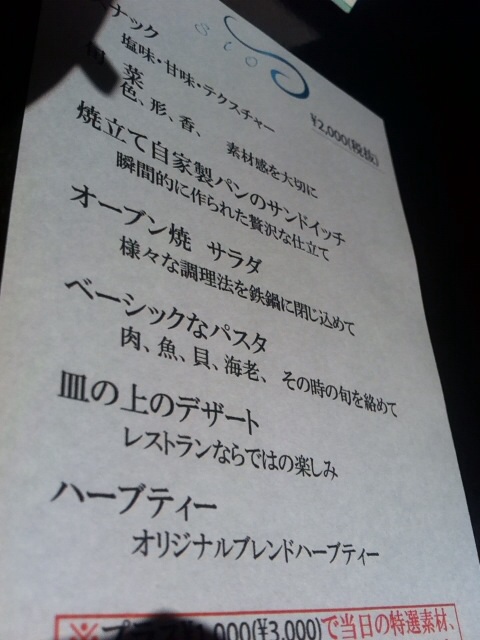 sio
¥2,000(税抜)
ナック
塩味・甘味・テクスチャー
旬菜
色、形、香、 素材感を大切に
焼立て自家製パンのサンドイッチ
瞬間的に作られた贅沢な仕立て
オーブン焼 サラダ
様々な調理法を鉄鍋に閉じ込めて
ベーシックなパスタ
肉、魚、貝、海老、その時の旬を絡めて
皿の上のデザート
レストランならではの楽しみ
ハーブティー
オリジナルブレンドハーブティー
※プ ,000(¥3,000)で当日の特選素材、